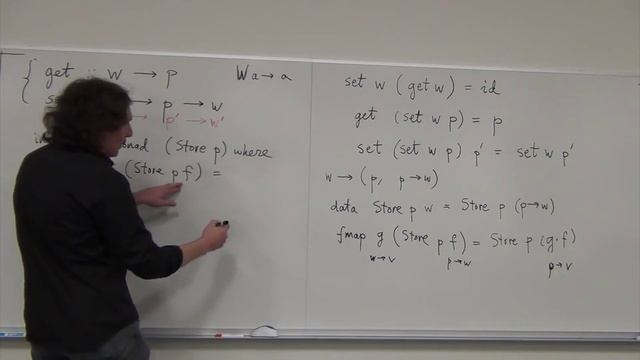 get :: w → p    W a → a
p → w
p' → w'
(Store p) where
(Store p f) =
set w (get w) = id
get (set w p) = p
set (set w p) p' = set w p'
w → (p, p→w)
data Store p w = Store p (p→w)
fmap g (Store p f) = Store p (g·f)
w→v    p→w    p→v